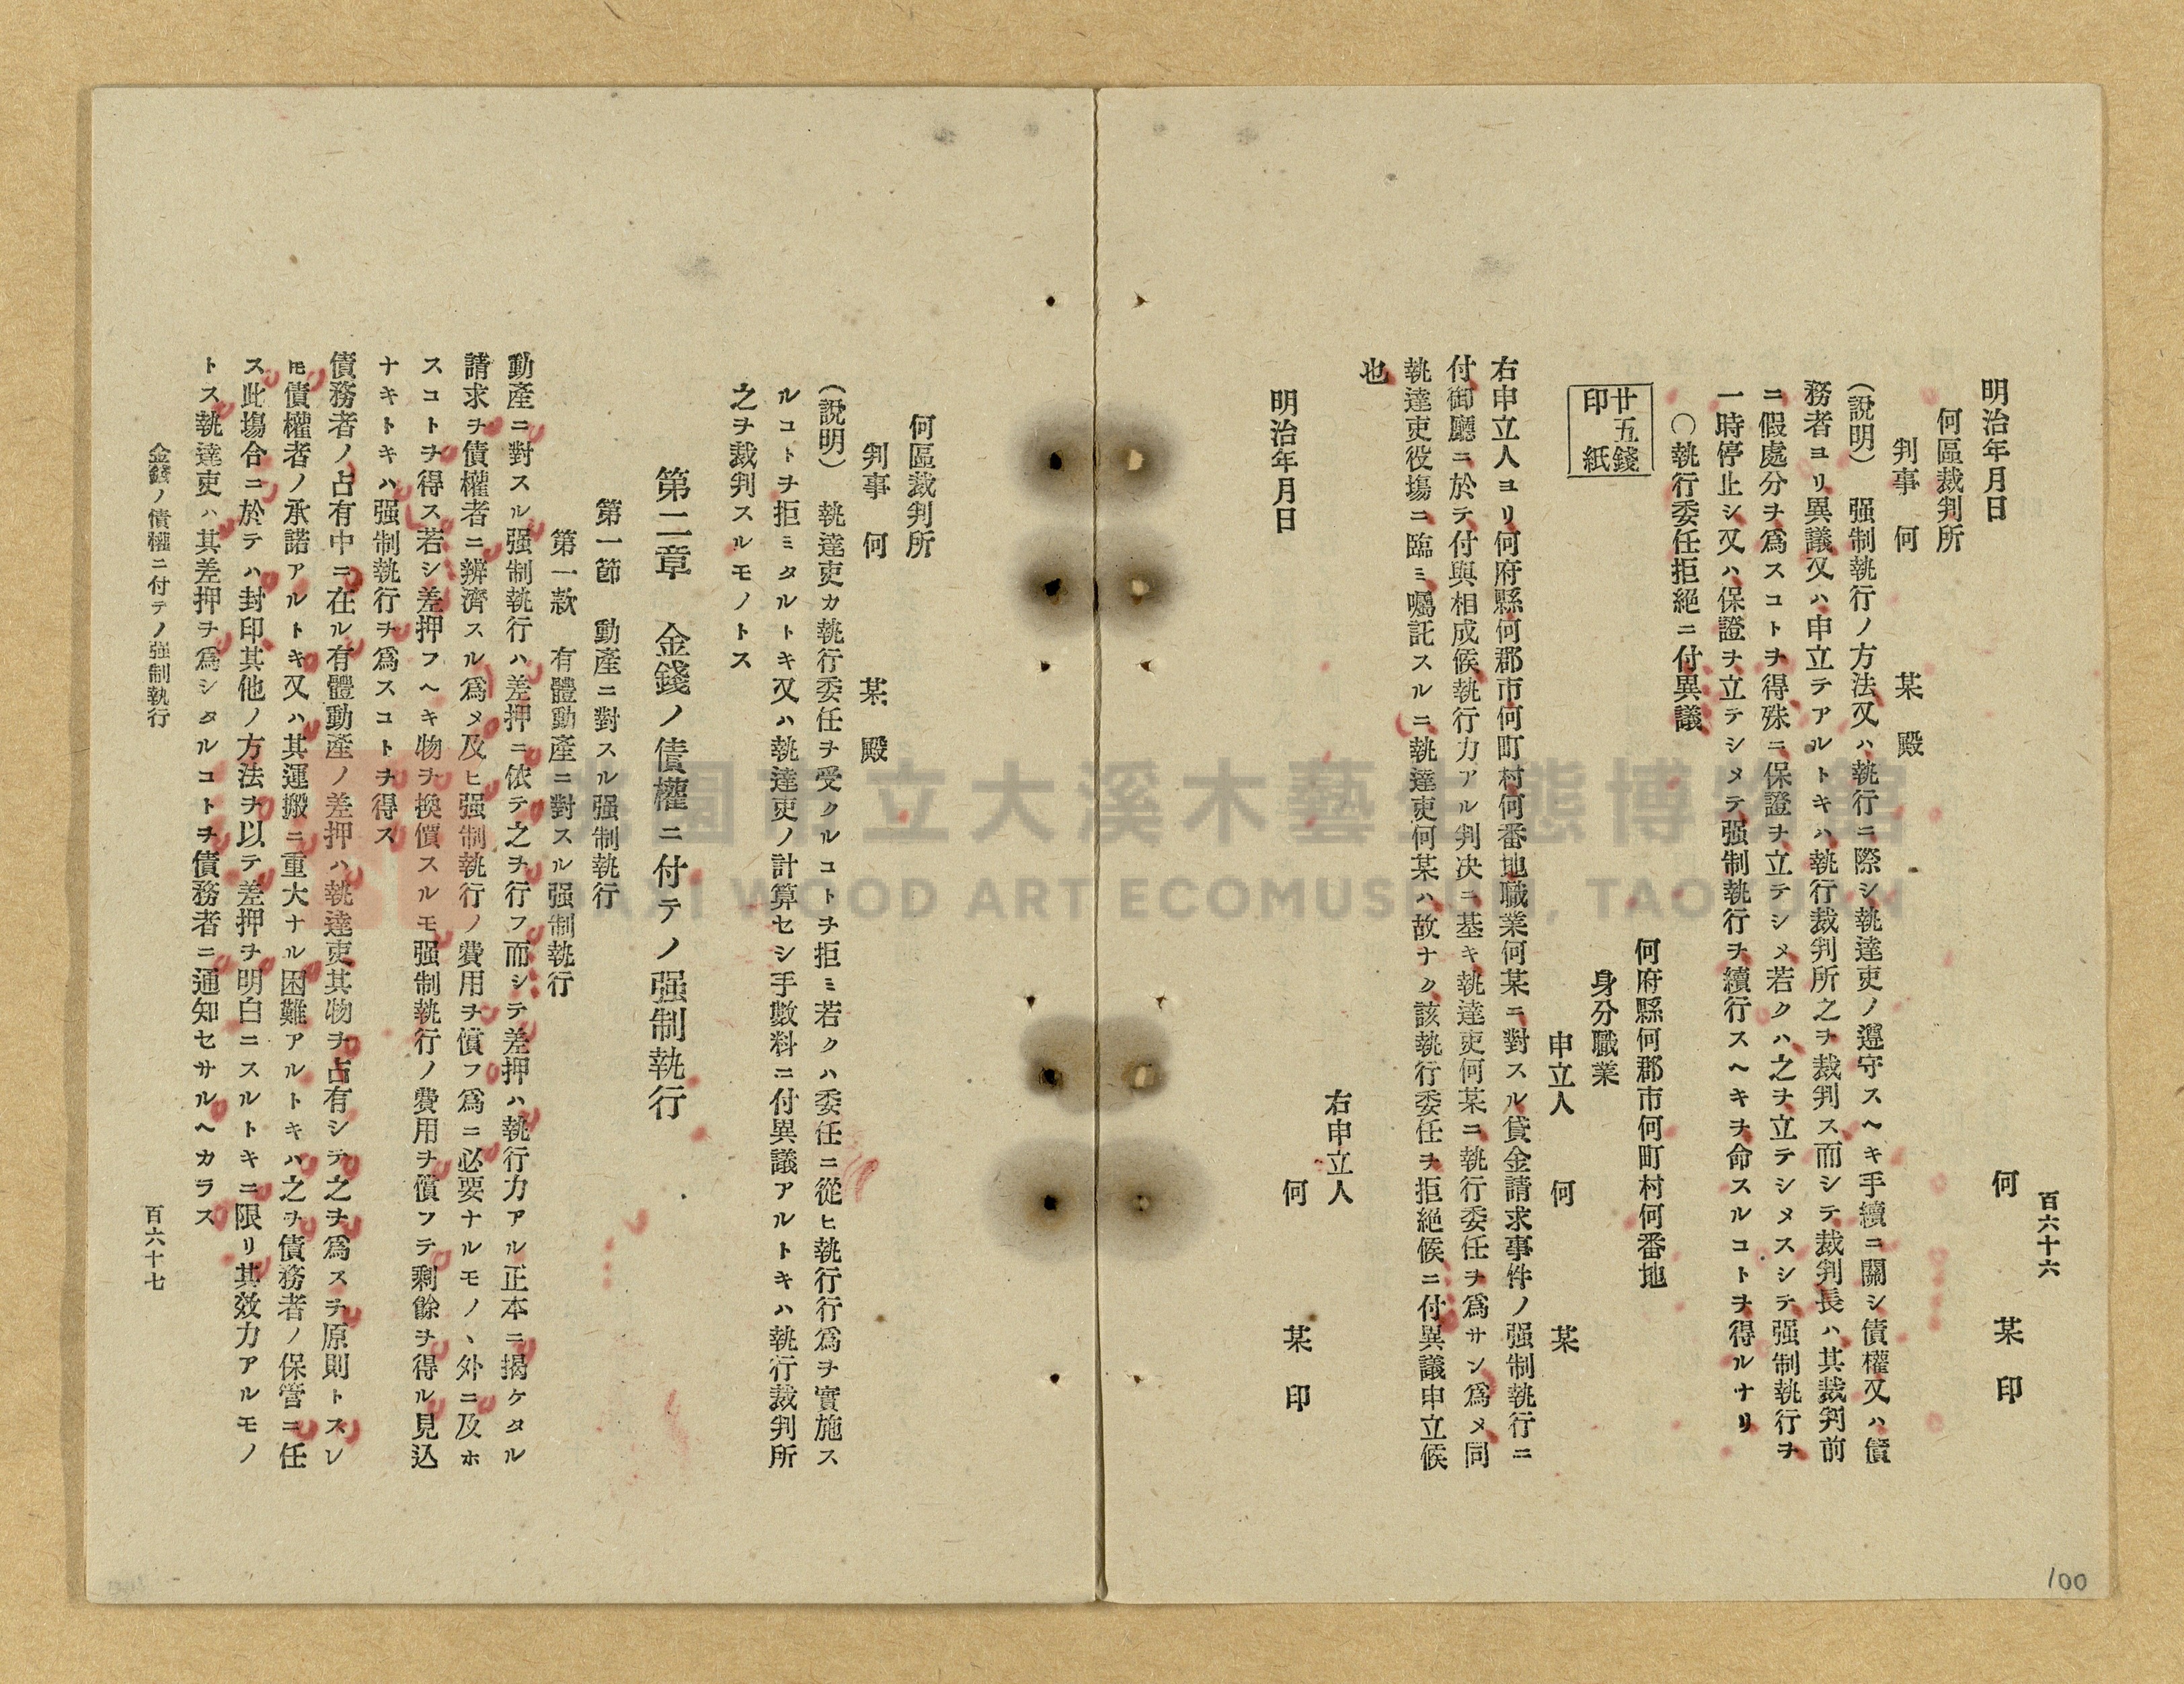 百六十六
何 某 印
明治年月日
何區裁判所
判事 何 某 殿
（說明） 强制執行ノ方法又ハ執行ニ際シ執達吏ノ遵守スヘキ手續ニ關シ債權又ハ債
務者ヨリ異議又ハ申立テアルトキハ執行裁判所之ヲ裁判ス而シテ裁判長ハ其裁判前
ニ假處分ヲ爲スコトヲ得殊ニ保證ヲ立テシメ若クハ之ヲ立テシメスシテ强制執行ヲ
一時停止シ又ハ保證ヲ立テシメテ强制執行ヲ續行スヘキヲ命スルコトヲ得ルナリ
〇執行委任拒絕ニ付異議
廿五錢
印紙
何府縣何郡市何町村何番地
身分職業
申立人 何 某
右申立人ヨリ何府縣何郡市何町村何番地職業何某ニ對スル貸金請求事件ノ强制執行ニ
付御廳ニ於テ付與相成候執行力アル判决ニ基キ執達吏何某ニ執行委任ヲ爲サン爲メ同
執達吏役塲ニ臨ミ囑託スルニ執達吏何某ハ故ナク該執行委任ヲ拒絕候ニ付異議申立候
也
右申立人
明治年月日
何 某 印
何區裁判所
判事 何 某 殿
（說明） 執達吏カ執行委任ヲ受クルコトヲ拒ミ若クハ委任ニ從ヒ執行行爲ヲ實施ス
ルコトヲ拒ミタルトキ又ハ執達吏ノ計算セシ手數料ニ付異議アルトキハ執行裁判所
之ヲ裁判スルモノトス
第二章 金錢ノ債權ニ付テノ强制執行
第一節 動產ニ對スル强制執行
第一款 有體動產ニ對スル强制執行
動產ニ對スル强制執行ハ差押ニ依テ之ヲ行フ而シテ差押ハ執行力アル正本ニ揭ケタル
請求ヲ債權者ニ辨濟スル爲メ及ヒ强制執行ノ費用ヲ償フ爲ニ必要ナルモノヽ外ニ及ホ
スコトヲ得ス若シ差押フヘキ物ヲ換價スルモ强制執行ノ費用ヲ償フテ剩餘ヲ得ル見込
ナキトキハ强制執行ヲ爲スコトヲ得ス
債務者ノ占有中ニ在ル有體動產ノ差押ハ執達吏其物ヲ占有シテ之ヲ爲スヲ原則トスレ
𪜈債權者ノ承諾アルトキ又ハ其運搬ニ重大ナル困難アルトキハ之ヲ債務者ノ保管ニ任
ス此塲合ニ於テハ封印其他ノ方法ヲ以テ差押ヲ明白ニスルトキニ限リ其效力アルモノ
トス執達吏ハ其差押ヲ爲シタルコトヲ債務者ニ通知セサルヘカラス
金錢ノ債權ニ付テノ强制執行
百六十七
100
桃園市立大溪木藝生態博物館
DAXI WOOD ART ECOMUSEUM, TAOYUAN